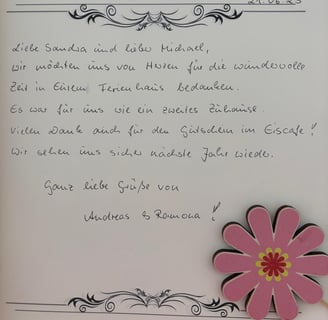 21.06.23
Liebe Sandra und lieber Michael,
wir möchten uns von Herzen für die wundervolle
Zeit in Eurem Ferienhaus bedanken.
Es war für uns wie ein zweites Zuhause.
Vielen Dank auch für den Gutschein im Eiscafe!
Wir sehen uns sicher nächste Jahr wieder.
Ganz liebe Grüße von
Andreas & Ramona!